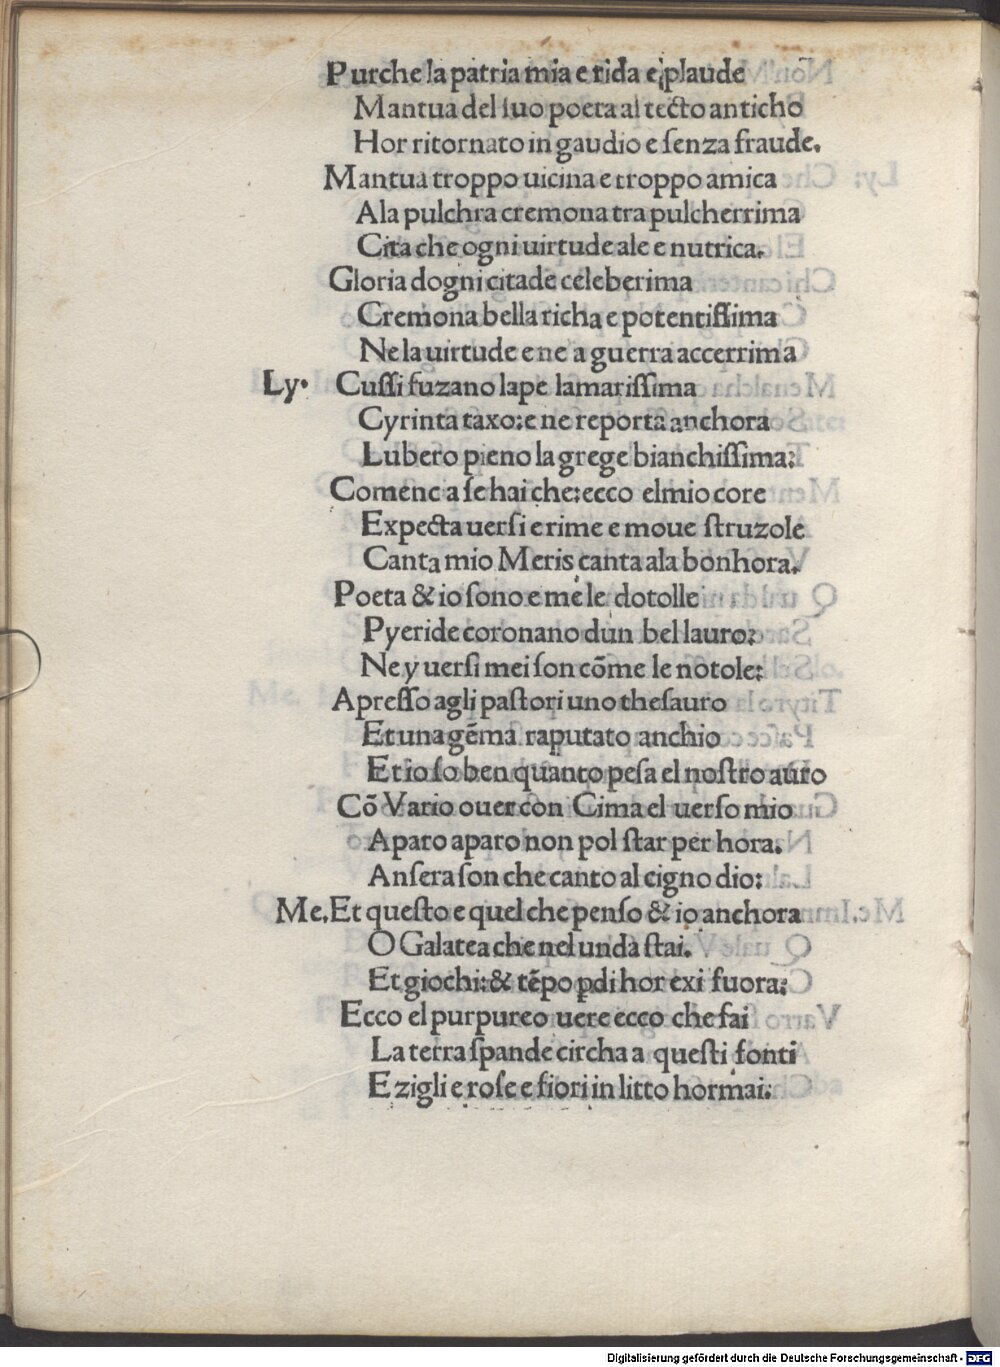 Purche la patria mia e rida e plaude
Mantua del suo poeta al tecto anticho
Hor ritornato in gaudio e senza fraude.
Mantua troppo uicina e troppo amica
A la pulchra cremona tra pulcherrima
Cita che ogni uirtude ale e nutrica.
Gloria dogni citade celeberima
Cremona bella richa e potentissima
Ne la uirtude e ne a guerra accerrima
Ly. Cussi fuzano lape lamarissima
Cyrinta taxo: e ne reporta anchora
Lubero pieno la grege bianchissima:
Comenc a se hai che: ecco elmio core
Expecta uersi e rime e moue struzole
Canta mio Meris canta ala bonhora.
Poeta & io sono e me le dotolle
Pyeride coronano dun bel lauro:
Ne y uersi mei son cōme le notole:
Apresso agli pastori uno thesauro
Et una gēma raputato anchio
Et io so ben quanto pesa el nostro auro
Cō Vario ouer con Cima el uerso mio
A paro a paro non pol star per hora.
Ansera son che canto al cigno dio:
Me. Et questo e quel che penso & io anchora
O Galatea che nel unda stai.
Et giochi: & tēpo ꝑdi hor exi fuora:
Ecco el purpureo uere ecco che fai
La terra spande circha a questi fonti
E zigli e rose e fiori in litto hormai.
Digitalisierung gefördert durch die Deutsche Forschungsgemeinschaft - DFG